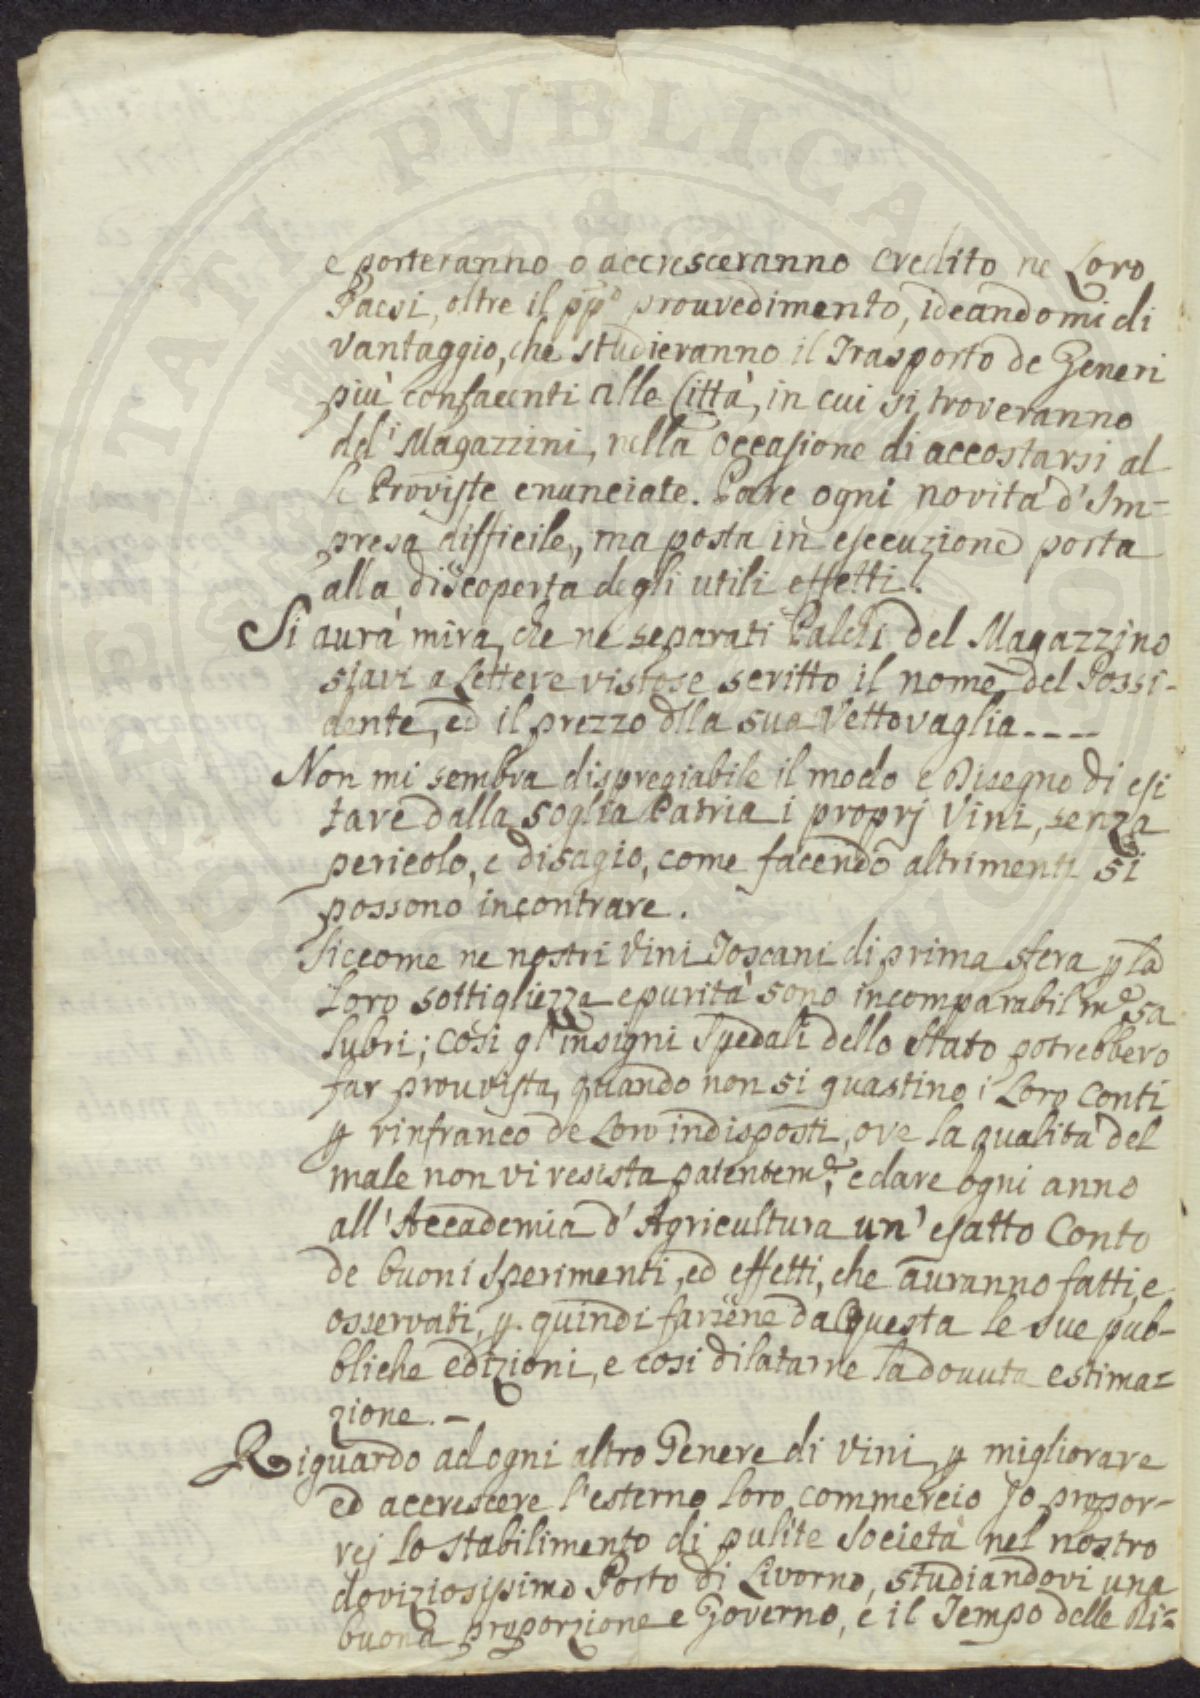 e porteranno o accresceranno credito ne Loro
Paesi, oltre il ppº prouvedimento, ideandomi di
vantaggio, che studieranno il Trasporto de Generi
più confacenti alle Città, in cui si troveranno
dei Magazzini, nella occasione di accostarsi al
le Proviste enunciate. Pare ogni novità d'Im=
presa difficile, ma posta in esecuzione porta
alla discoperta degli utili effetti.
Si aurà mira, che ne separati Palchi del Magazzino
siavi a Lettere vistose scritto il nome del Possi-
dente, ed il prezzo dlla sua Vettovaglia----
Non mi sembra dispregiabile il modo e Disegno di esi
tare dalla soglia Patria i proprj Vini, senza
pericolo, e disagio, come facendo altrimenti si
possono incontrare.
Siccome ne nostri Vini Toscani di prima sfera p la
Loro sottigliezza e purità sono incomparabilmᵉ sa
lubri; così gl'insigni Spedali dello Stato potrebbero
far prouvista, quando non si guastino i Loro Conti
p rinfranco de Loro indisposti, ove la qualità del
male non vi resista patentemᵉ, e dare ogni anno
all'Accademia d'Agricultura un'esatto Conto
de buoni sperimenti, ed effetti, che auranno fatti, e
osservati, p. quindi farsene da Questa le sue pub-
bliche edizioni, e così dilatarne la douuta estima=
zione.-
Riguardo ad ogni altro Genere di Vini, p migliorare
ed accrescere l'esterno loro commercio Jo propor-
rei lo stabilimento di pulite Società nel nostro
doviziosissimo Porto di Livorno, studiandovi una
buona proporzione e Governo, e il Tempo delle Ri=